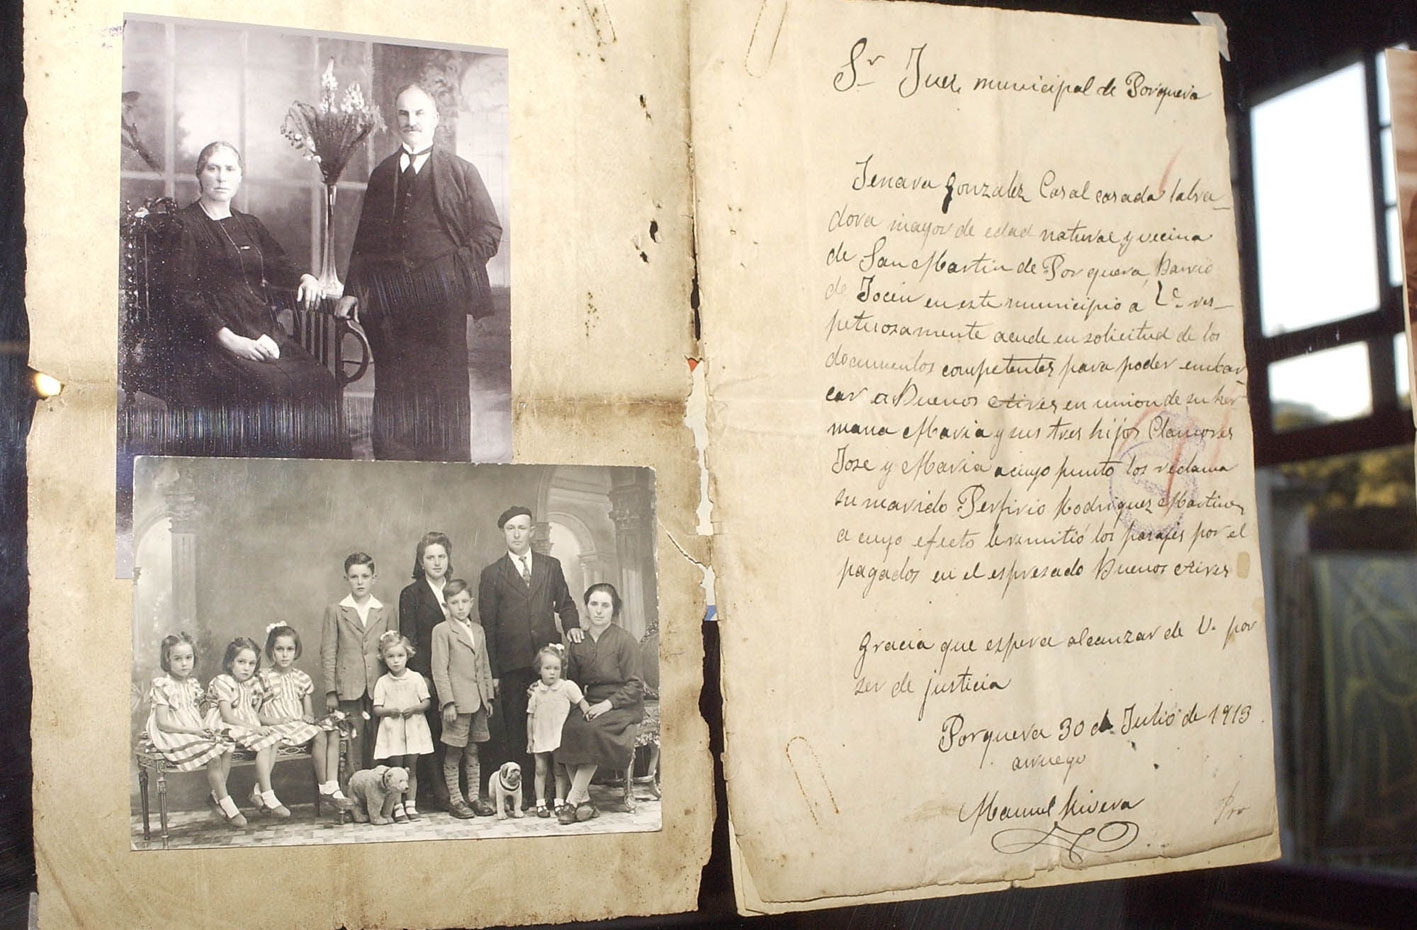 Sr Juez municipal de Porquera
Jenara Gonzalez Casal casada labra-
dora mayor de edad natural y vecina
de San Martin de Porquera, Barrio
de Jocin en este municipio á V. res-
petuosamente acude en solicitud de los
documentos competentes para poder embar
car a Buenos Aires en union de su her
mana Maria y sus tres hijos Clamores
Jose y Maria a cuyo punto los reclama
su marido Perfirio Rodriguez Martinez
a cuyo efecto le remitió los pasajes por el
pagados en el espresado Buenos Aires
Gracia que espera alcanzar de V. por
ser de justicia
Porquera 30 de Julio de 1913.
arruego
Manuel Rivera